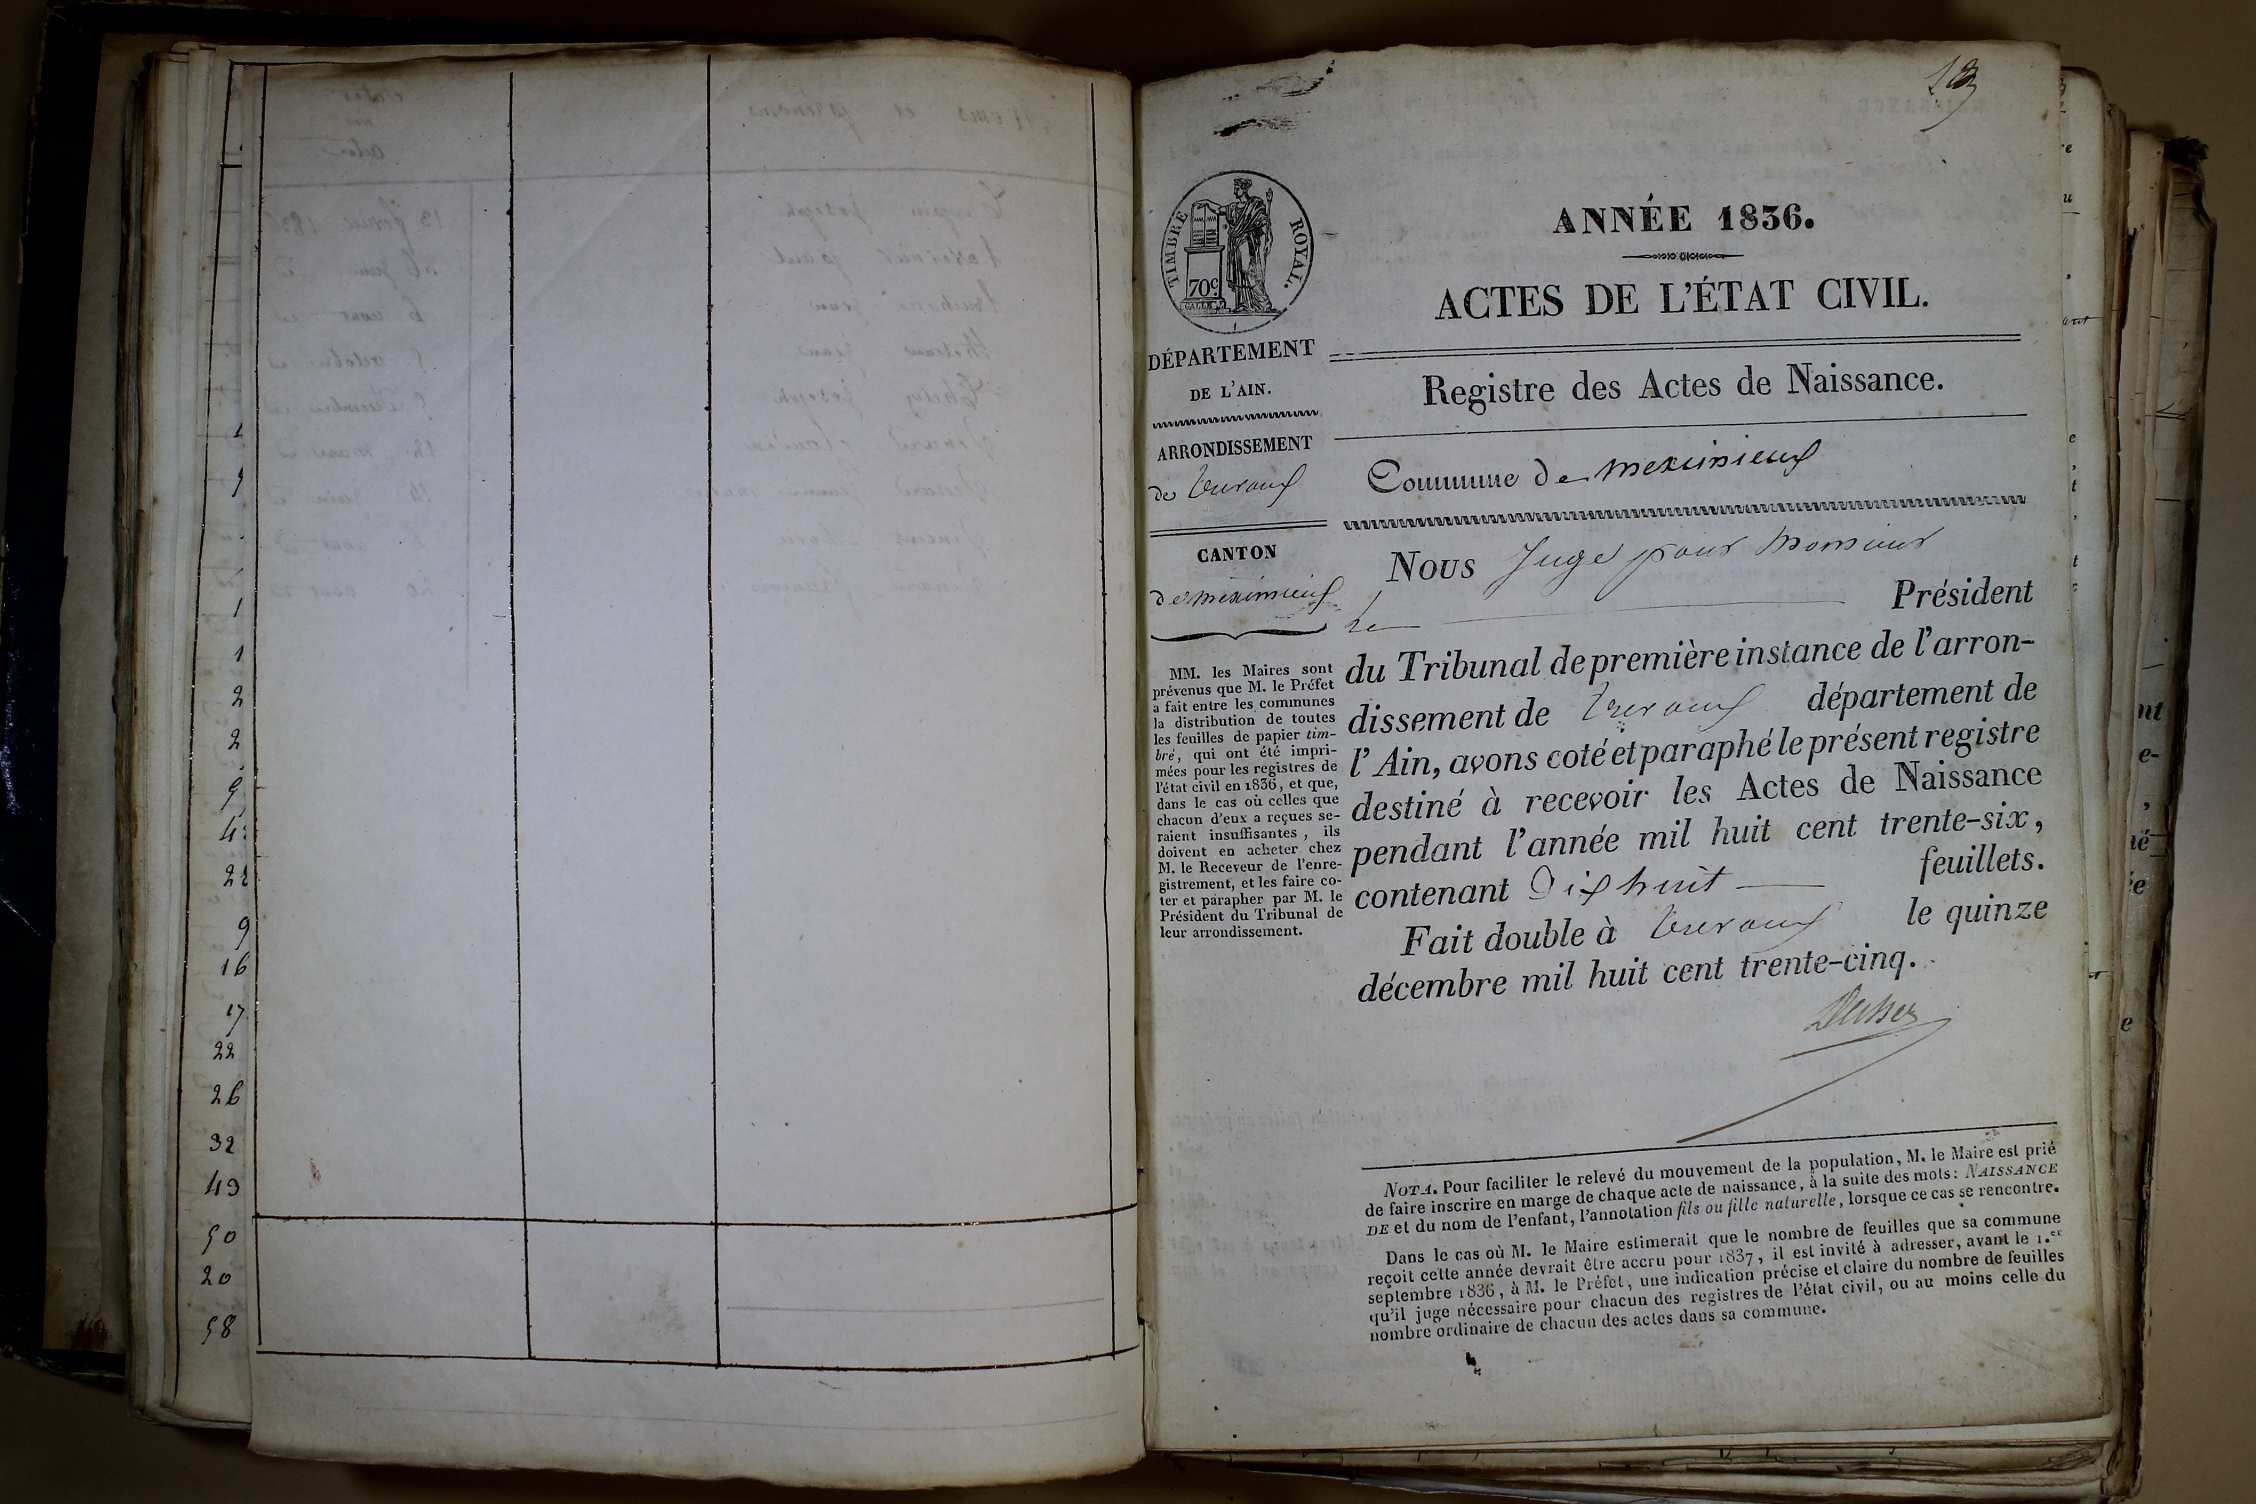 9
1
1
2
2
9
22
9
16
17
22
26
32
43
50
20
58
TIMBRE ROYAL.
70c
DÉPARTEMENT
DE L'AIN.
ARRONDISSEMENT
de Trevoux
CANTON
de meximieux
MM. les Maires sont
prévenus que M. le Préfet
a fait entre les communes
la distribution de toutes
les feuilles de papier tim-
bré, qui ont été impri-
mées pour les registres de
l'état civil en 1836, et que,
dans le cas où celles que
chacun d'eux a reçues se-
raient insuffisantes, ils
doivent en acheter chez
M. le Receveur de l'enre-
gistrement, et les faire co-
ter et parapher par M. le
Président du Tribunal de
leur arrondissement.
ANNÉE 1836.
ACTES DE L'ÉTAT CIVIL.
Registre des Actes de Naissance.
Commune de meximieux
Nous Juge pour Monsieur
le Président
du Tribunal de première instance de l'arron-
dissement de Trevoux département de
l'Ain, avons coté et paraphé le présent registre
destiné à recevoir les Actes de Naissance
pendant l'année mil huit cent trente-six,
contenant Dix huit feuillets.
Fait double à Trevoux le quinze
décembre mil huit cent trente-cinq.
NOTA. Pour faciliter le relevé du mouvement de la population, M. le Maire est prié
de faire inscrire en marge de chaque acte de naissance, à la suite des mots: NAISSANCE
DE et du nom de l'enfant, l'annotation fils ou fille naturelle, lorsque ce cas se rencontre.
Dans le cas où M. le Maire estimerait que le nombre de feuilles que sa commune
reçoit cette année devrait être accru pour 1837, il est invité à adresser, avant le 1.er
septembre 1836, à M. le Préfet, une indication précise et claire du nombre de feuilles
qu'il juge nécessaire pour chacun des registres de l'état civil, ou au moins celle du
nombre ordinaire de chacun des actes dans sa commune.